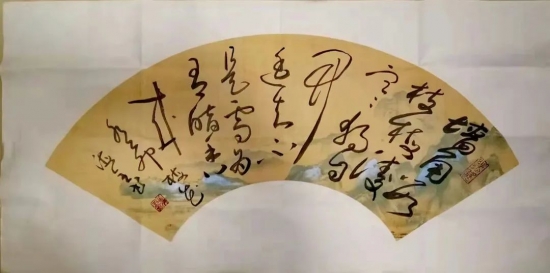 墙角
数枝梅凌
寒独自
开
遥知不
是雪为
有暗香
来
梅花
癸卯